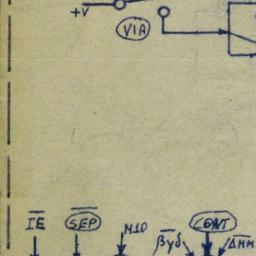 +V
VIA
IE SEP M10 βγδ CENT ΔMM